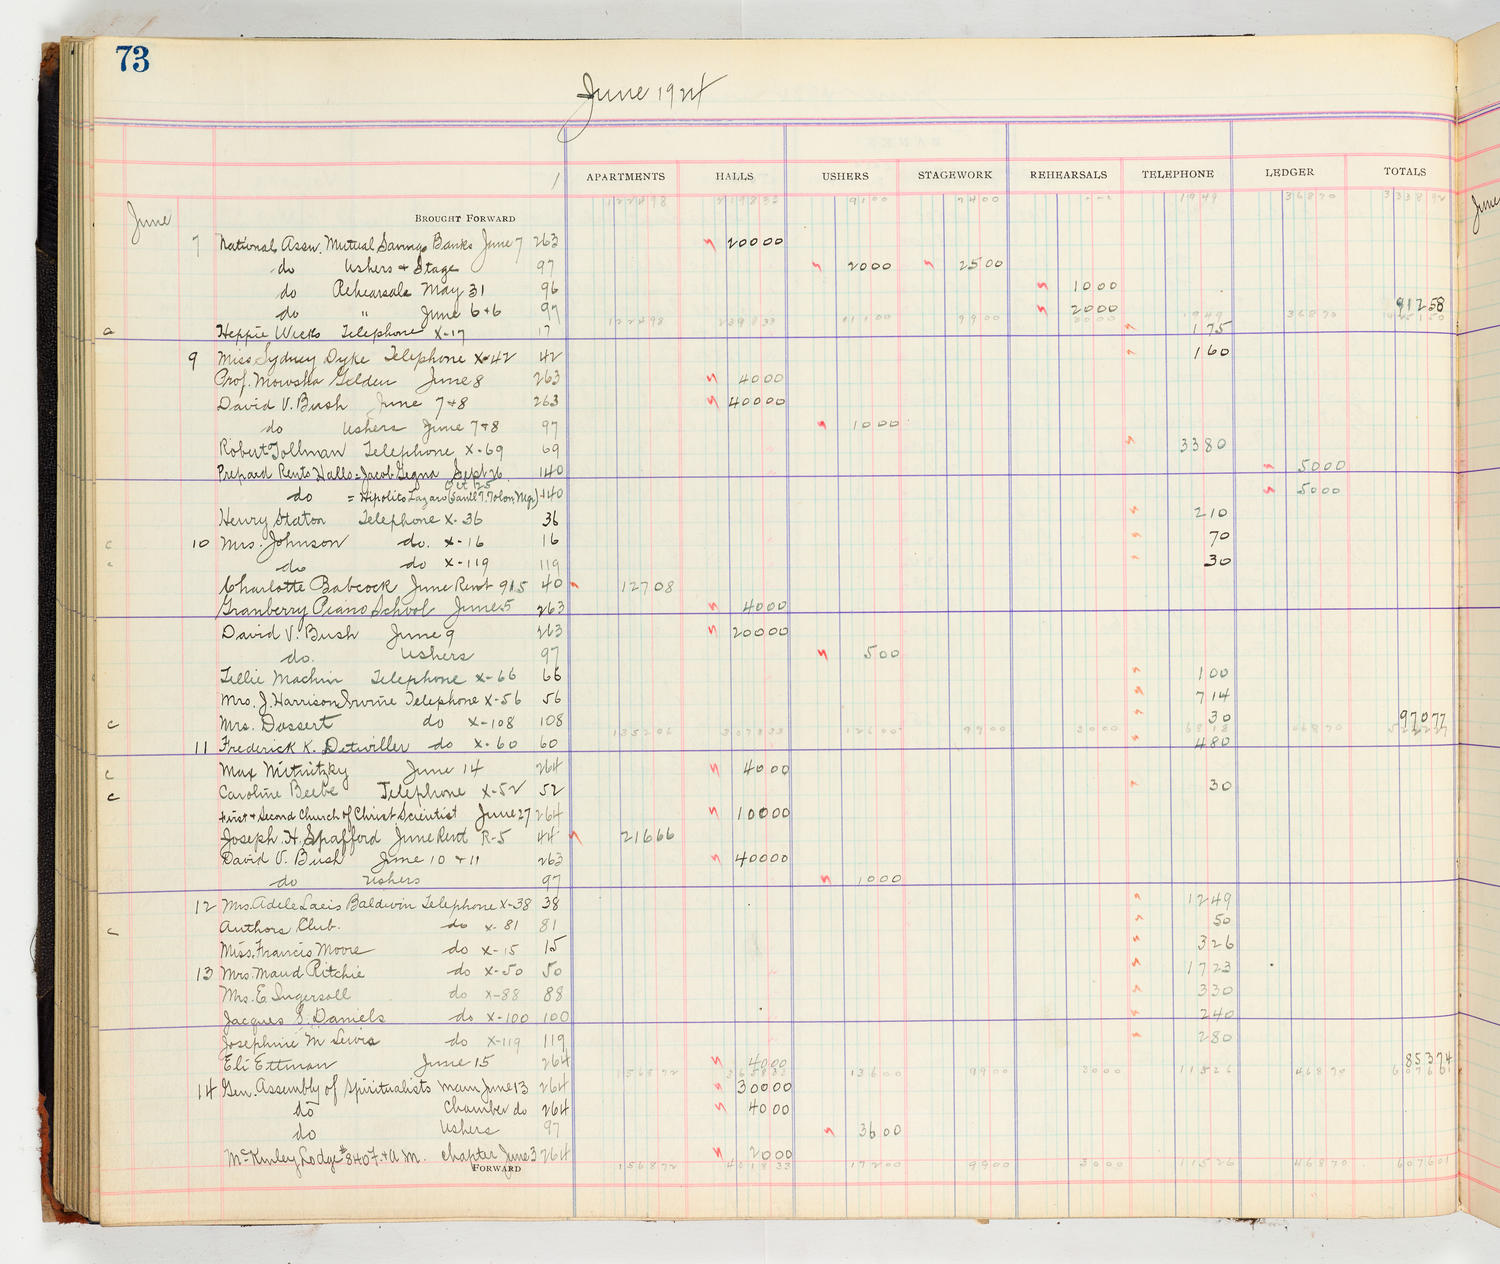 73
June 1924
APARTMENTS HALLS USHERS STAGEWORK REHEARSALS TELEPHONE LEDGER TOTALS
1 122498 219833 9100 7400 1949 36870
June BROUGHT FORWARD June
7 National Assn. Mutual Savings Banks June 7 263 20000
do Ushers & Stage 97 2000 2500
do Rehearsals May 31 96 1000
do " June 6+6 97 2000 91258
122498 239833 11100 9900 3000 1949 36870
a Heppie Wicks Telephone X-17 17 175
9 Miss Sydney Dyke Telephone X-42 42 160
Prof. Mowsha Gelden June 8 263 4000
David V. Bush June 7+8 263 40000
do Ushers June 7+8 97 1000
Robert Tollman Telephone X-69 69 3380
Prepaid Rents Halls = Jacob Gegna Sept 26 140 5000
Oct 25
do = Hipolito Lazaro 140 5000
Henry Staton Telephone X-36 36 210
c 10 Mrs. Johnson do. X-16 16 70
c do do X-119 119 30
Charlotte Babcock June Rent 915 40 12708
Granberry Piano School June 5 263 4000
David V. Bush June 9 263 20000
do. Ushers 97 500
Tillie Machin Telephone X-66 66 100
Mrs. J. Harrison Irvine Telephone X-56 56 714
c Mrs. Dossert do X-108 108 30 97077
135206 307833 12600 9900 3000 46870
11 Frederick K. Detwiller do X-60 60 480
c Max Nitnitzky June 14 264 4000
c Caroline Beebe Telephone X-52 52 30
First & Second Church of Christ Scientist June 27 264 10000
Joseph H. Spafford June Rent R-5 44 21666
David V. Bush June 10 + 11 263 40000
do Ushers 97 1000
12 Mrs. Adele Laeis Baldwin Telephone X-38 38 1249
c Authors Club. do X-81 81 50
Miss. Francis Moore do X-15 15 326
13 Mrs. Maud Ritchie do X-50 50 1723
Mrs. E Ingersoll do X-88 88 330
Jacques S. Daniels do X-100 100 240
Josephine M Lewis do X-119 119 280
Eli Ettman June 15 264 4000 85374
156872 13600 9900 3000 11526 46870 607601
14 Gen. Assembly of Spiritualists Main June 13 264 30000
do Chamber do 264 4000
do Ushers 97 3600
McKinley Lodge #840 F. + A M. Chapter June 3 264 2000
FORWARD 156872 17200 9900 3000 11526 46870 607601